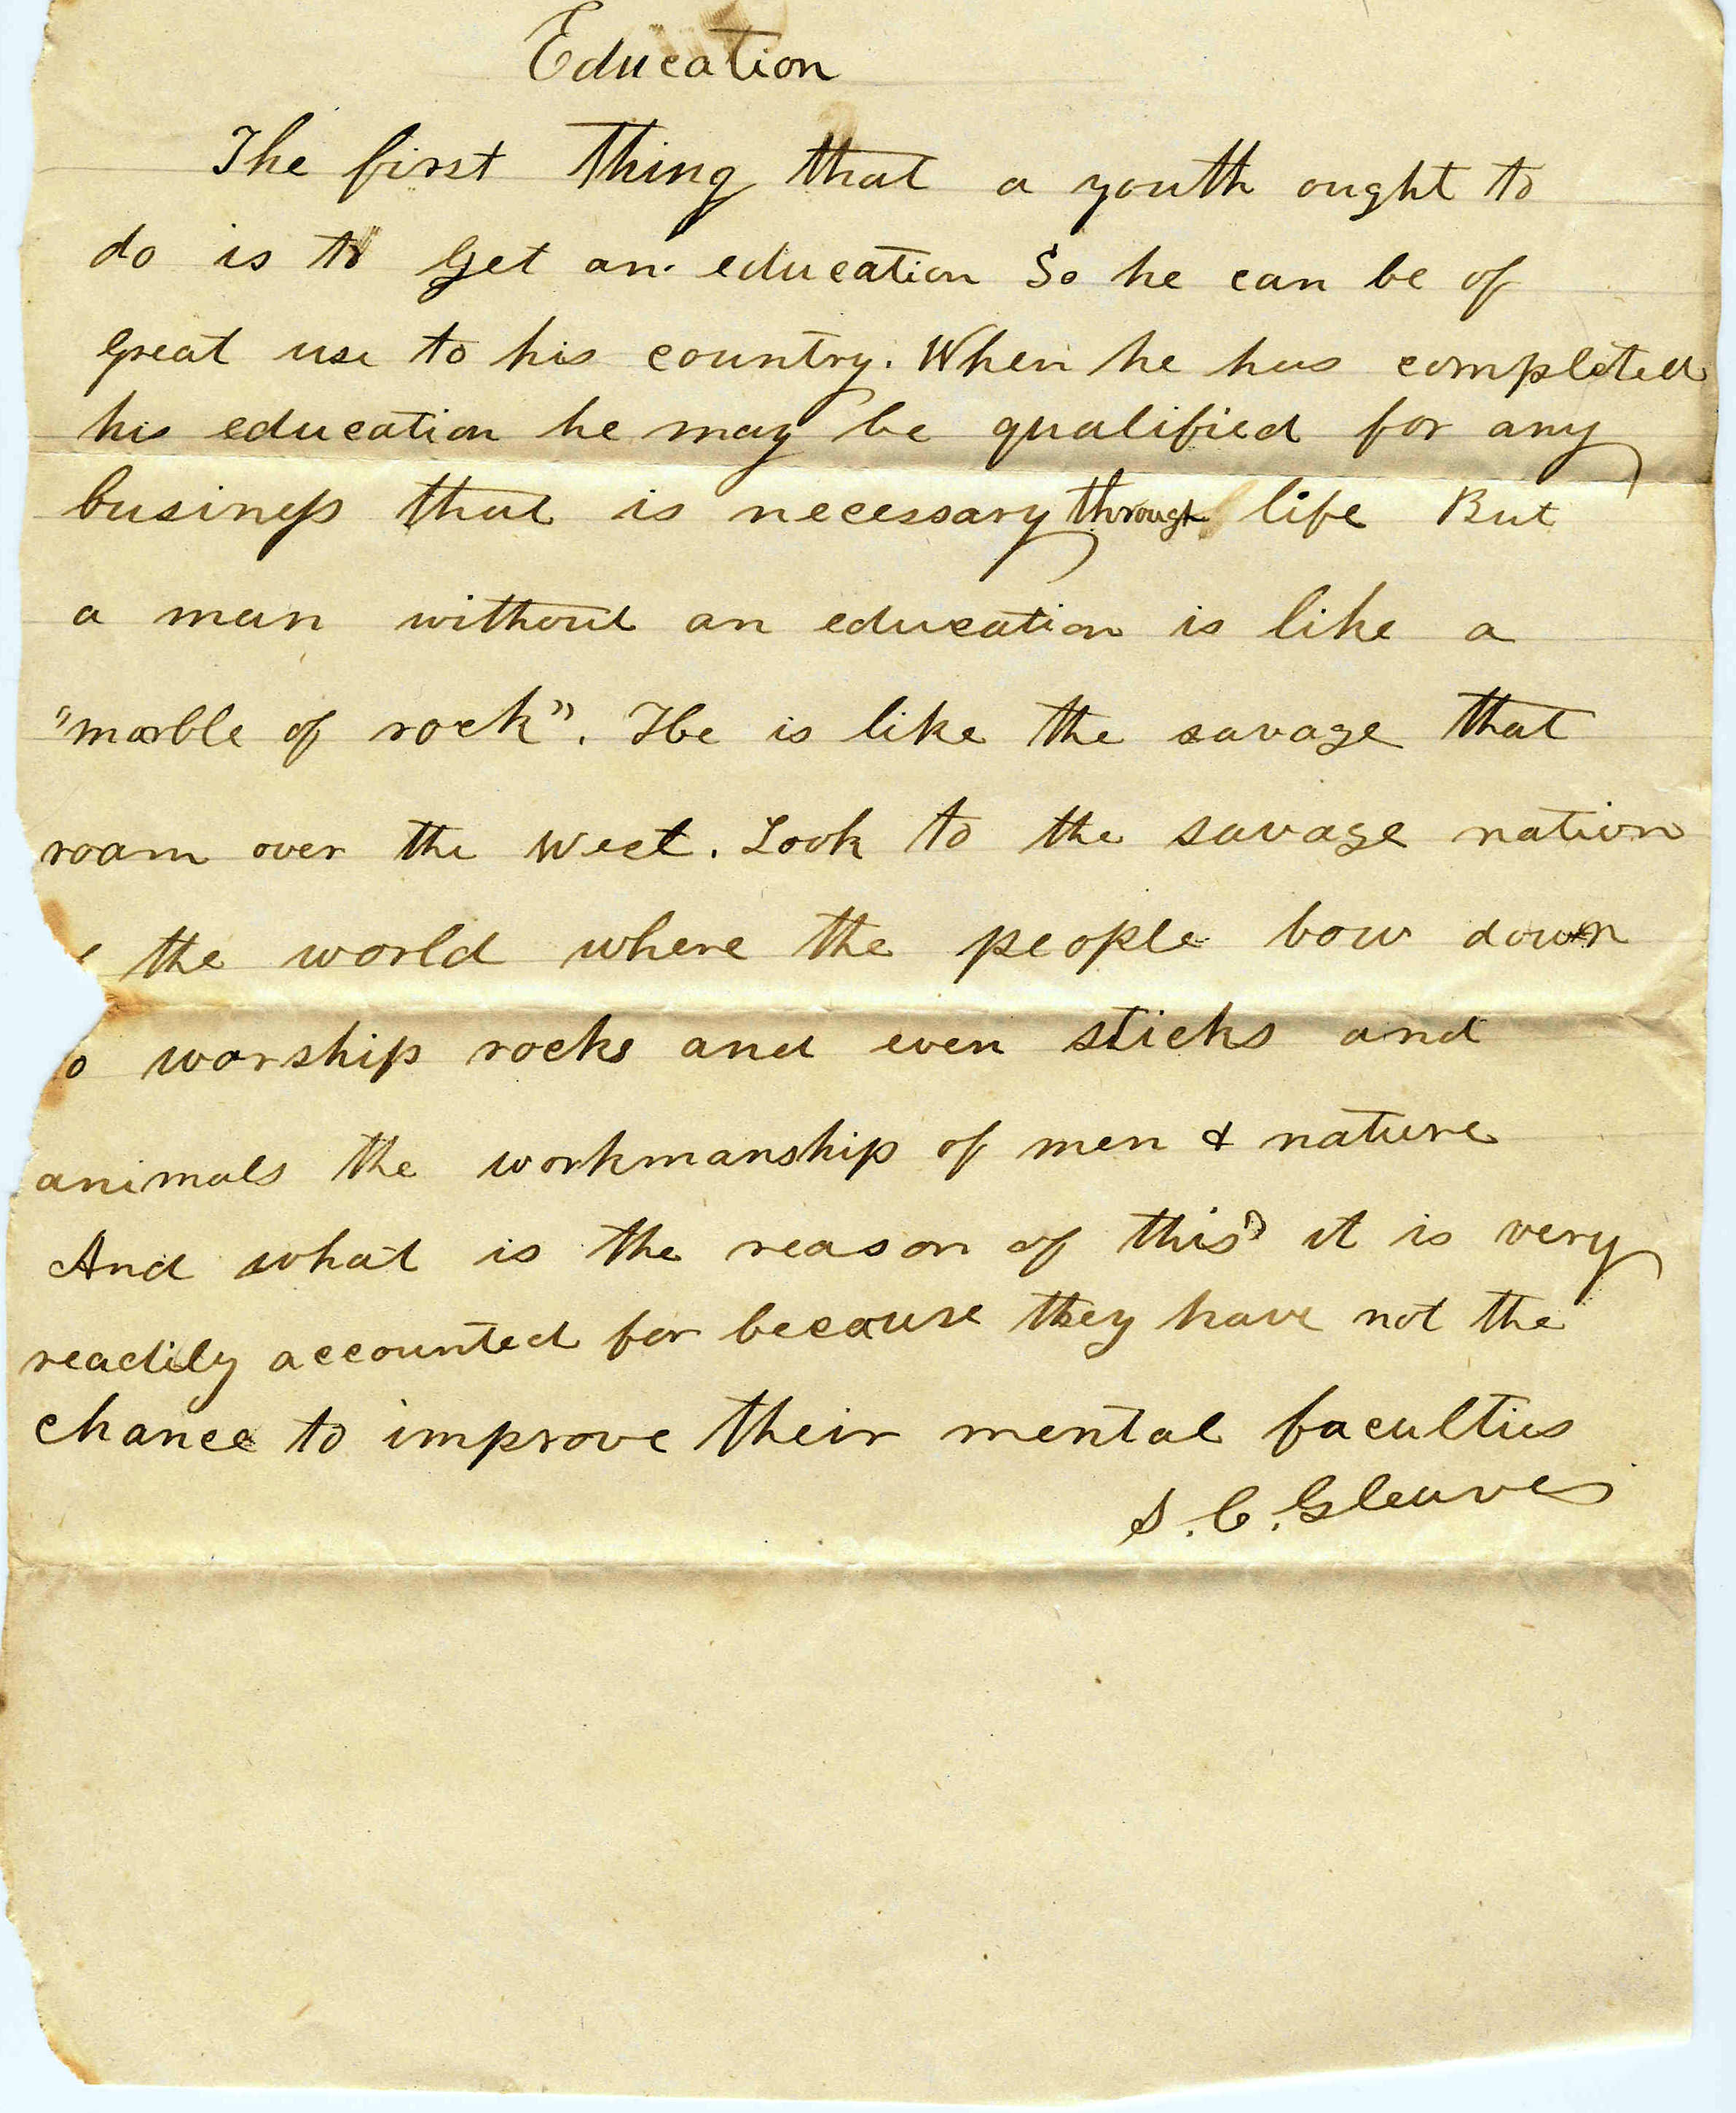 Education
The first thing that a youth ought to
do is to get an education So he can be of
great use to his country. When he has completed
his education he may be qualified for any
business that is necessary through life But
a man without an education is like a
"marble of rock". He is like the savage that
roam over the West. Look to the savage nation
the world where the people bow down
o worship rocks and even sticks and
animals the workmanship of men & nature
And what is the reason of this? it is very
readily accounted for because they have not the
chance to improve their mental faculties
S. C. Gleaves